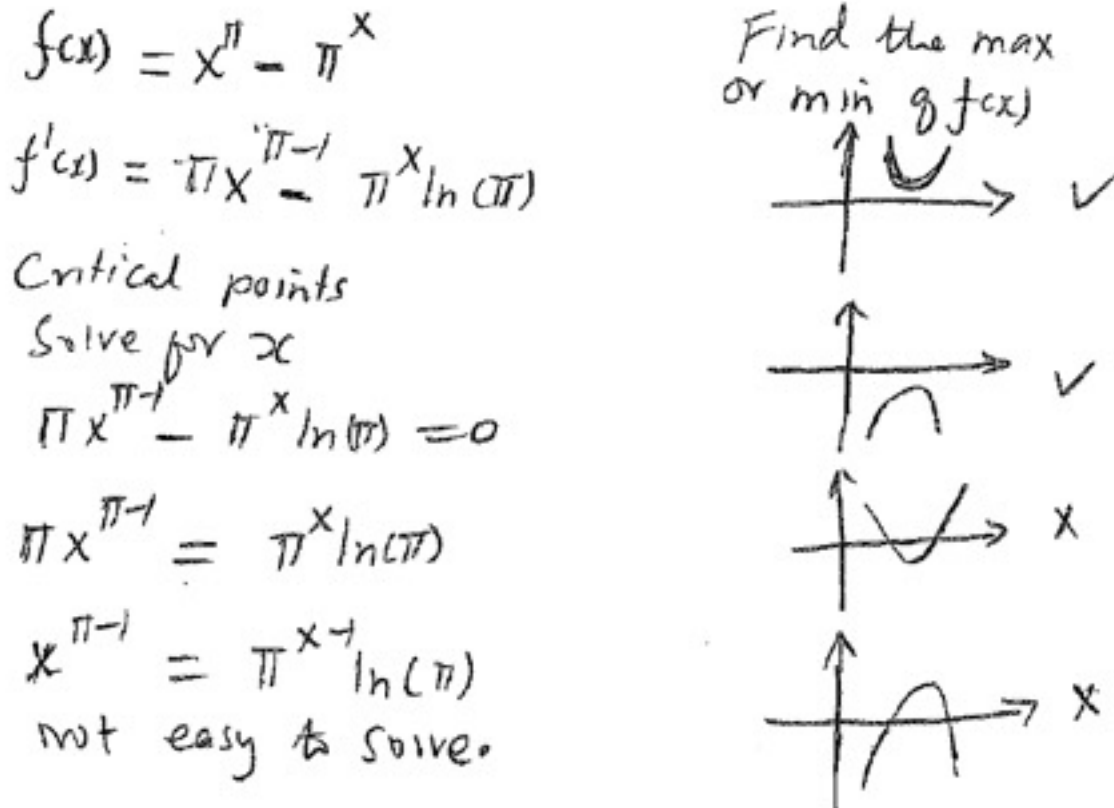 f(x) = x^π - π^x
f'(x) = πx^(π-1) - π^x ln(π)
Critical points
Solve for x
πx^(π-1) - π^x ln(π) = 0
πx^(π-1) = π^x ln(π)
x^(π-1) = π^(x-1) ln(π)
not easy to solve.
Find the max
or min of f(x)
✓
✓
x
x